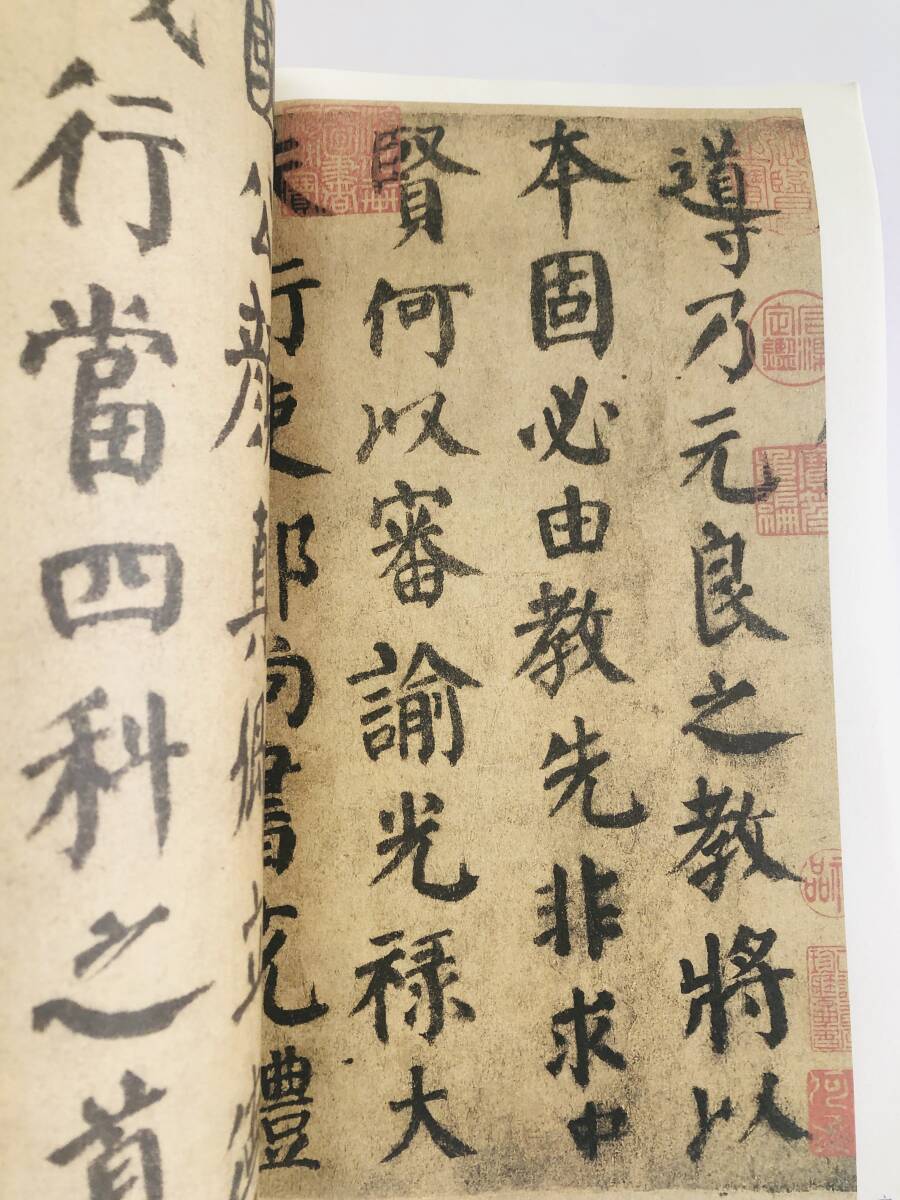 導乃元良之教將以
本固必由教先非求中
賢何以審諭光祿大
夫行吏部尚書充禮
國公顏真卿立
行當四科之首